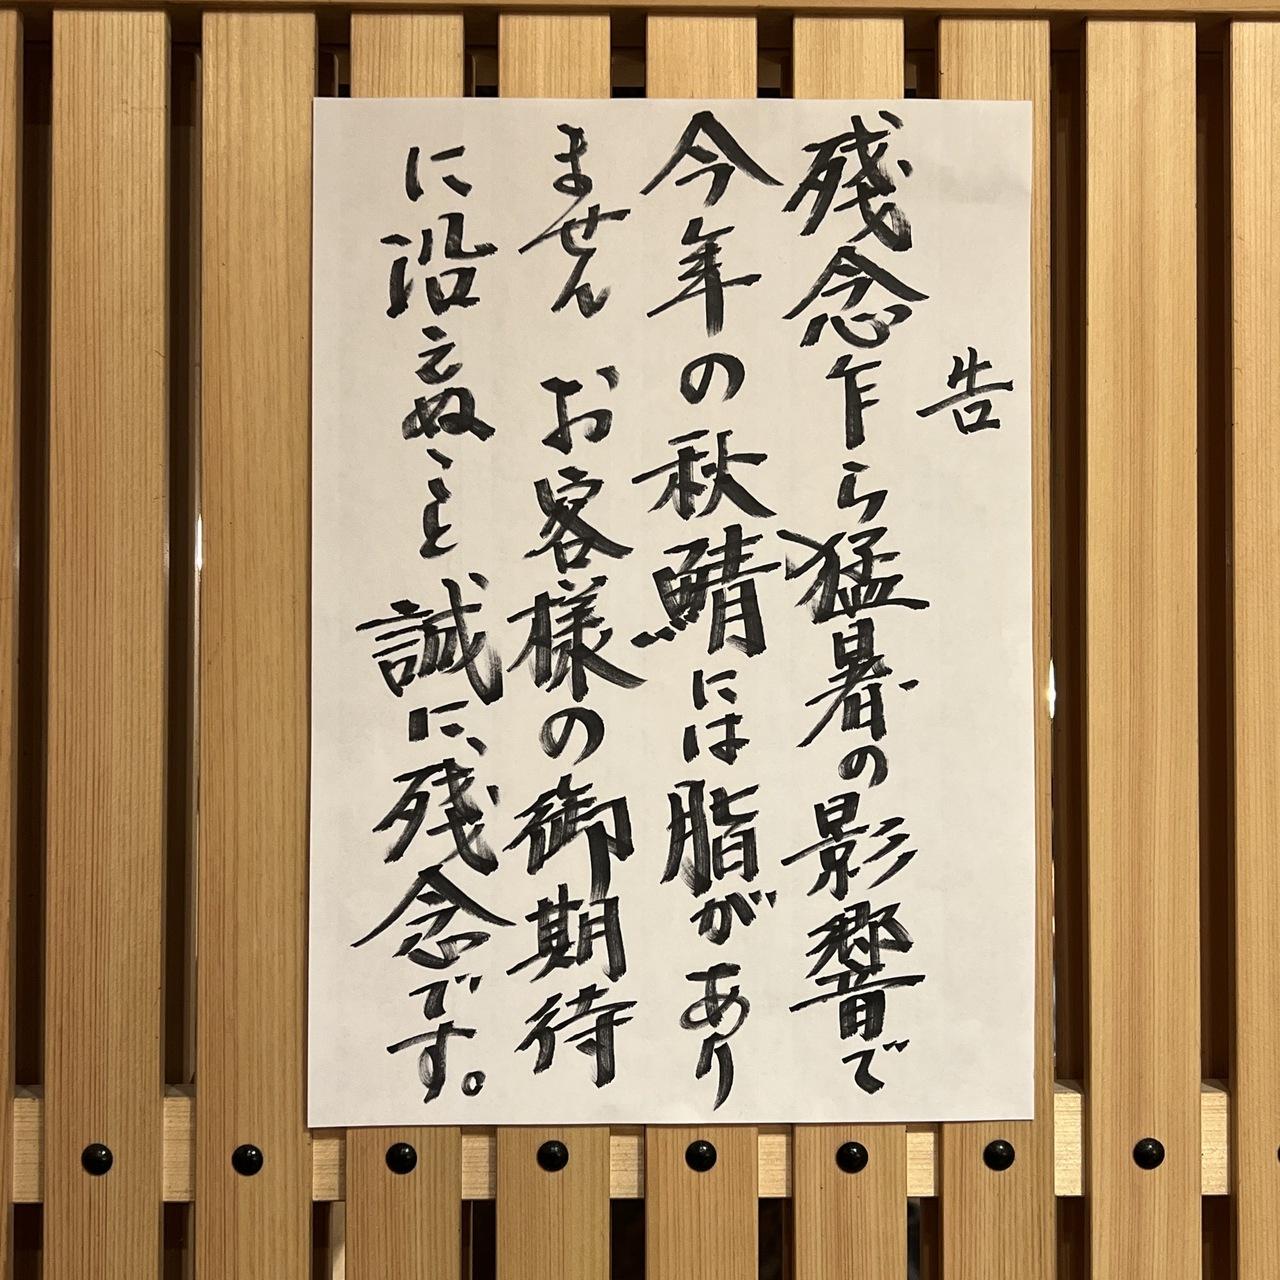 告
残念乍ら猛暑の影響で
今年の秋鯖には脂があり
ません お客様の御期待
に沿えぬこと誠に、残念です。